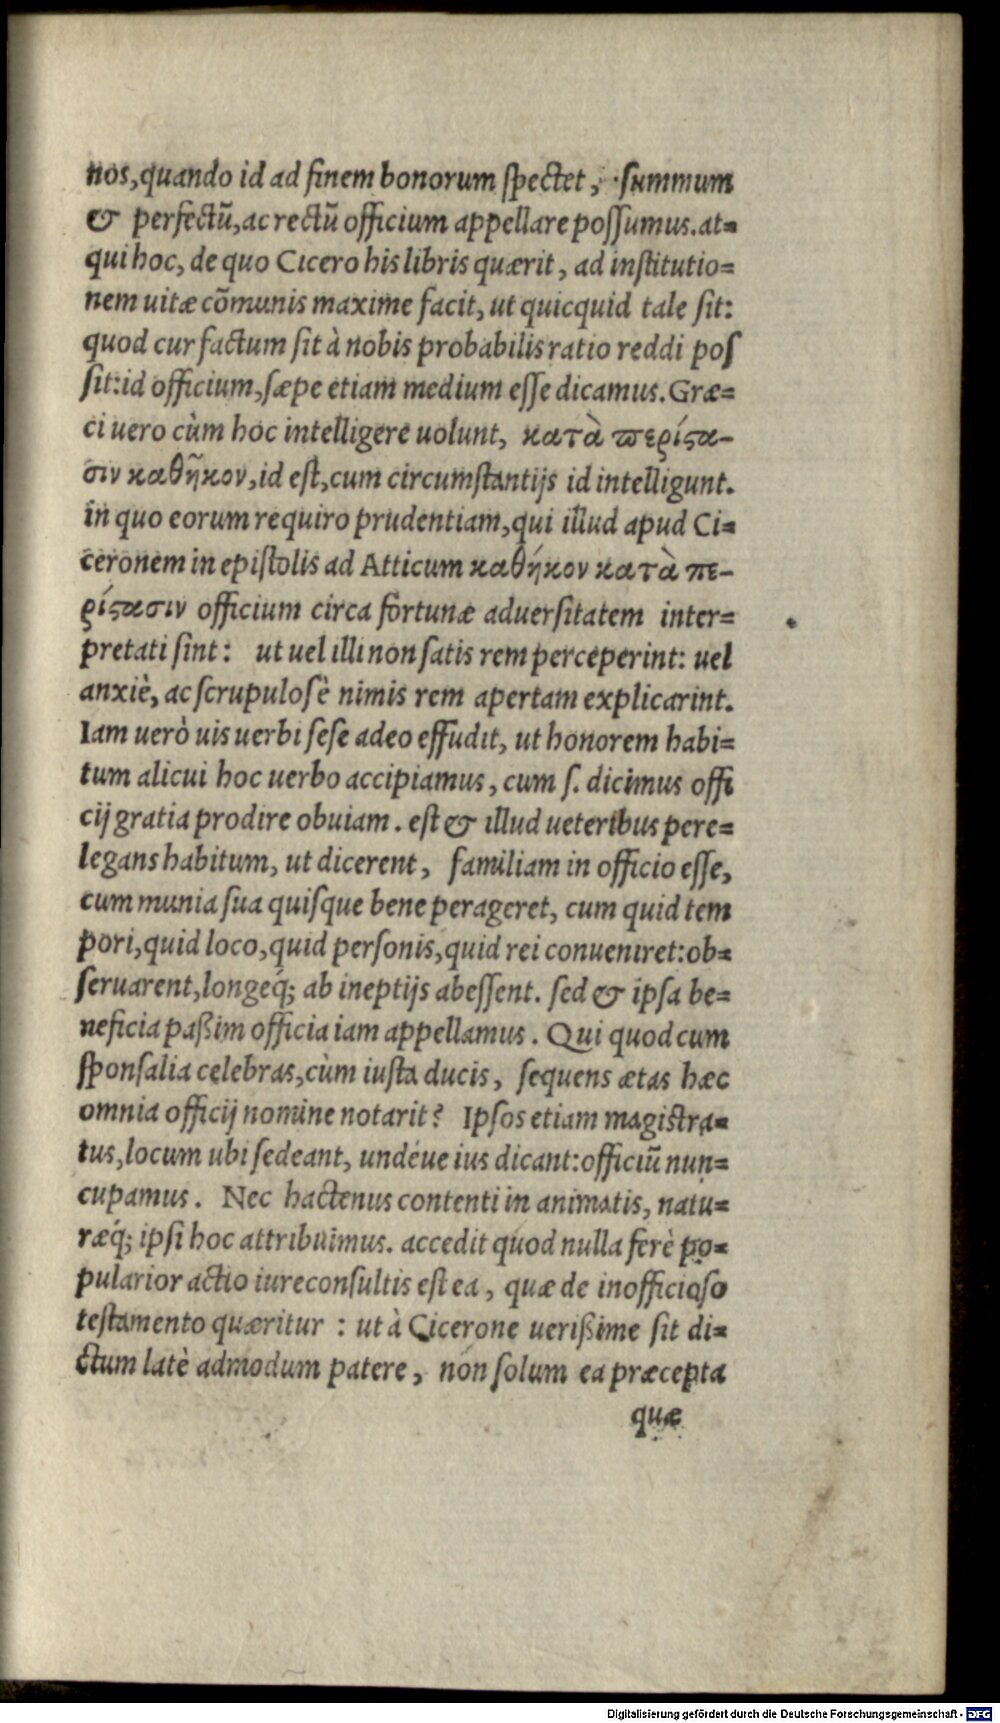 nos,quando id ad finem bonorum spectet, summum
& perfectũ,ac rectũ officium appellare possumus.at=
qui hoc, de quo Cicero his libris quærit, ad institutio=
nem uitæ cõmunis maxime facit, ut quicquid tale sit:
quod cur factum sit à nobis probabilis ratio reddi pos
sit:id officium,sæpe etiam medium esse dicamus.Græ=
ci uero cùm hoc intelligere uolunt, κατὰ ϖερίϛα-
σιν καθῆκον,id est,cum circumstantijs id intelligunt.
in quo eorum requiro prudentiam,qui illud apud Ci=
ceronem in epistolis ad Atticum καθήκον κατὰ πε-
ρίϛασιν officium circa fortunæ aduersitatem inter=
pretati sint: ut uel illi non satis rem perceperint: uel
anxiè, ac scrupulosè nimis rem apertam explicarint.
Iam uerò uis uerbi sese adeo effudit, ut honorem habi=
tum alicui hoc uerbo accipiamus, cum s. dicimus offi
cij gratia prodire obuiam. est & illud ueteribus pere=
legans habitum, ut dicerent, familiam in officio esse,
cum munia sua quisque bene perageret, cum quid tem
pori,quid loco,quid personis,quid rei conueniret:ob=
seruarent,longeq́; ab ineptijs abessent. sed & ipsa be=
neficia paßim officia iam appellamus. Qui quod cum
sponsalia celebras,cùm iusta ducis, sequens ætas hæc
omnia officij nomine notarit? Ipsos etiam magistra=
tus,locum ubi sedeant, undéue ius dicant:officiũ nun=
cupamus. Nec hactenus contenti in animatis, natu=
ræq́; ipsi hoc attribuimus. accedit quod nulla ferè po=
pularior actio iureconsultis est ea, quæ de inofficioso
testamento quæritur : ut à Cicerone uerißime sit di=
ctum latè admodum patere, non solum ea præcepta
quæ
Digitalisierung gefördert durch die Deutsche Forschungsgemeinschaft - DFG